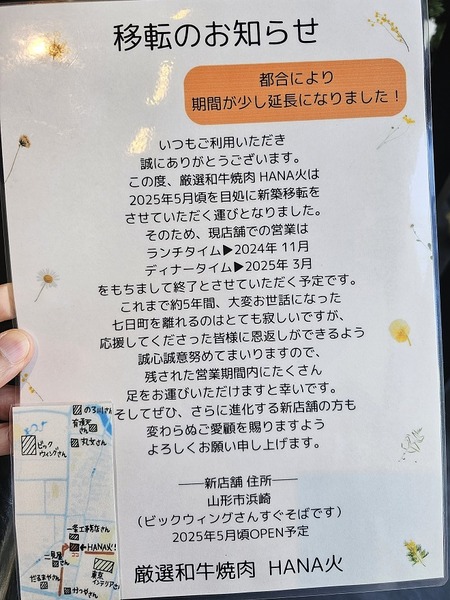 移転のお知らせ
都合により
期間が少し延長になりました！
いつもご利用いただき
誠にありがとうございます。
この度、厳選和牛焼肉 HANA火は
2025年5月頃を目処に新築移転を
させていただく運びとなりました。
そのため、現店舗での営業は
ランチタイム▶2024年 11月
ディナータイム▶2025年 3月
をもちまして終了とさせていただく予定です。
これまで約5年間、大変お世話になった
七日町を離れるのはとても寂しいですが、
応援してくださった皆様に恩返しができるよう
誠心誠意努めてまいりますので、
残された営業期間内にたくさん
足をお運びいただけますと幸いです。
そしてぜひ、さらに進化する新店舗の方も
変わらぬご愛顧を賜りますよう
よろしくお願い申し上げます。
──新店舗 住所──
山形市浜崎
（ビックウィングさんすぐそばです）
2025年5月頃OPEN予定
厳選和牛焼肉 HANA火
のろ川さん
さん
丸文さん
ビック
ウィングさん
一条工務店さん
←HANA火!
ココ
二見屋
さん
だるまやさん
かつやさん
東京
インテリアさん